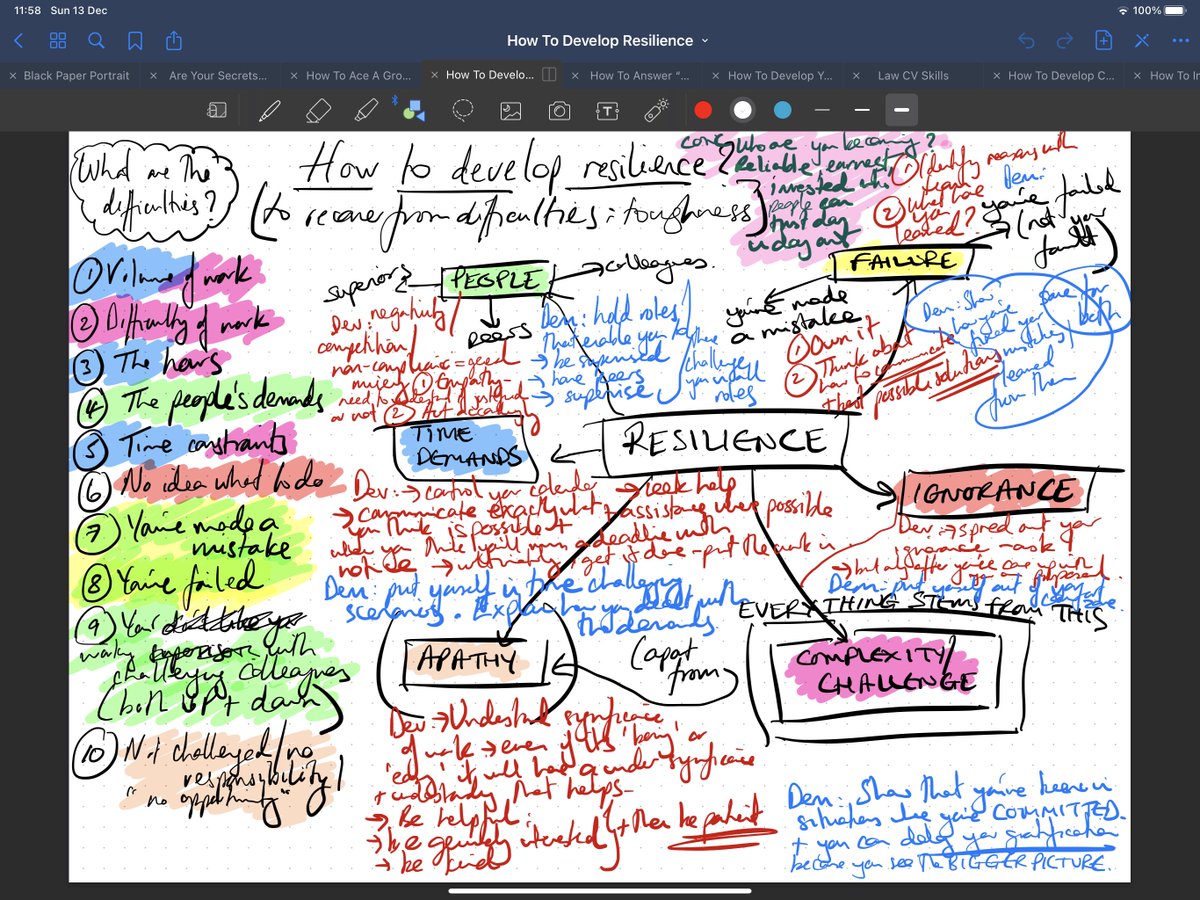 11:58 Sun 13 Dec
100%
How To Develop Resilience
Black Paper Portrait
Are Your Secrets...
How To Ace A Gro...
How To Develo...
How To Answer “...
How To Develop Y...
Law CV Skills
How To Develop C...
How To In
What are the difficulties?
How to develop resilience?
(to recover from difficulties : toughness)
Who are you becoming?
Reliable, earnest,
invested who
people can
trust day
in day out
① Identify reasons with
team
② What have
you
learned?
Dem:
you've failed
(not your
fault)
① Volume of work
② Difficulty of work
③ The hours
④ The people's demands
⑤ Time constraints
⑥ No idea what to do
⑦ You've made a
mistake
⑧ You've failed
⑨ You
working with
challenging colleagues
(both UP + down)
⑩ Not challenged / no
responsibility /
"no opportunity"
superiors
PEOPLE
colleagues
peers
Dev: negativity /
competition /
non-compliance = good
① Empathy -
need to
or not ② Act accordingly
Dem: hold roles
that enable you to
→ be supervised
→ have peers
→ supervise
challenge
you in all
roles
FAILURE
you've made
a mistake
① Own it
② Think about
how to communicate
+ best possible solutions
Dem: Show
how you've
fixed your
mistakes /
learned
from them
same for
both
RESILIENCE
TIME
DEMANDS
Dev: → control your calendar
→ communicate exactly what
you think is possible +
when you think you'll miss a deadline with
notice → ultimately get it done - put the work in
→ seek help
+ assistance where possible
Dem: put yourself in time challenging
scenarios. Explain how you dealt with
the demands
IGNORANCE
Dev: → spread out your
ignorance - ask
→ but only after you've come up with
a proposal
Dem: put yourself out of your
comfort zone
EVERYTHING STEMS FROM THIS
COMPLEXITY/
CHALLENGE
APATHY
(apart
from)
Dev: → Understand significance
of work → even if it's 'boring' or
'easy' it will have a wider significance
+ understanding that helps -
→ Be helpful
→ be genuinely interested
→ be kind
+ then be patient
Dem: Show that you've been in
situations where you're COMMITTED.
+ you can delay your gratification
because you see the BIGGER PICTURE.